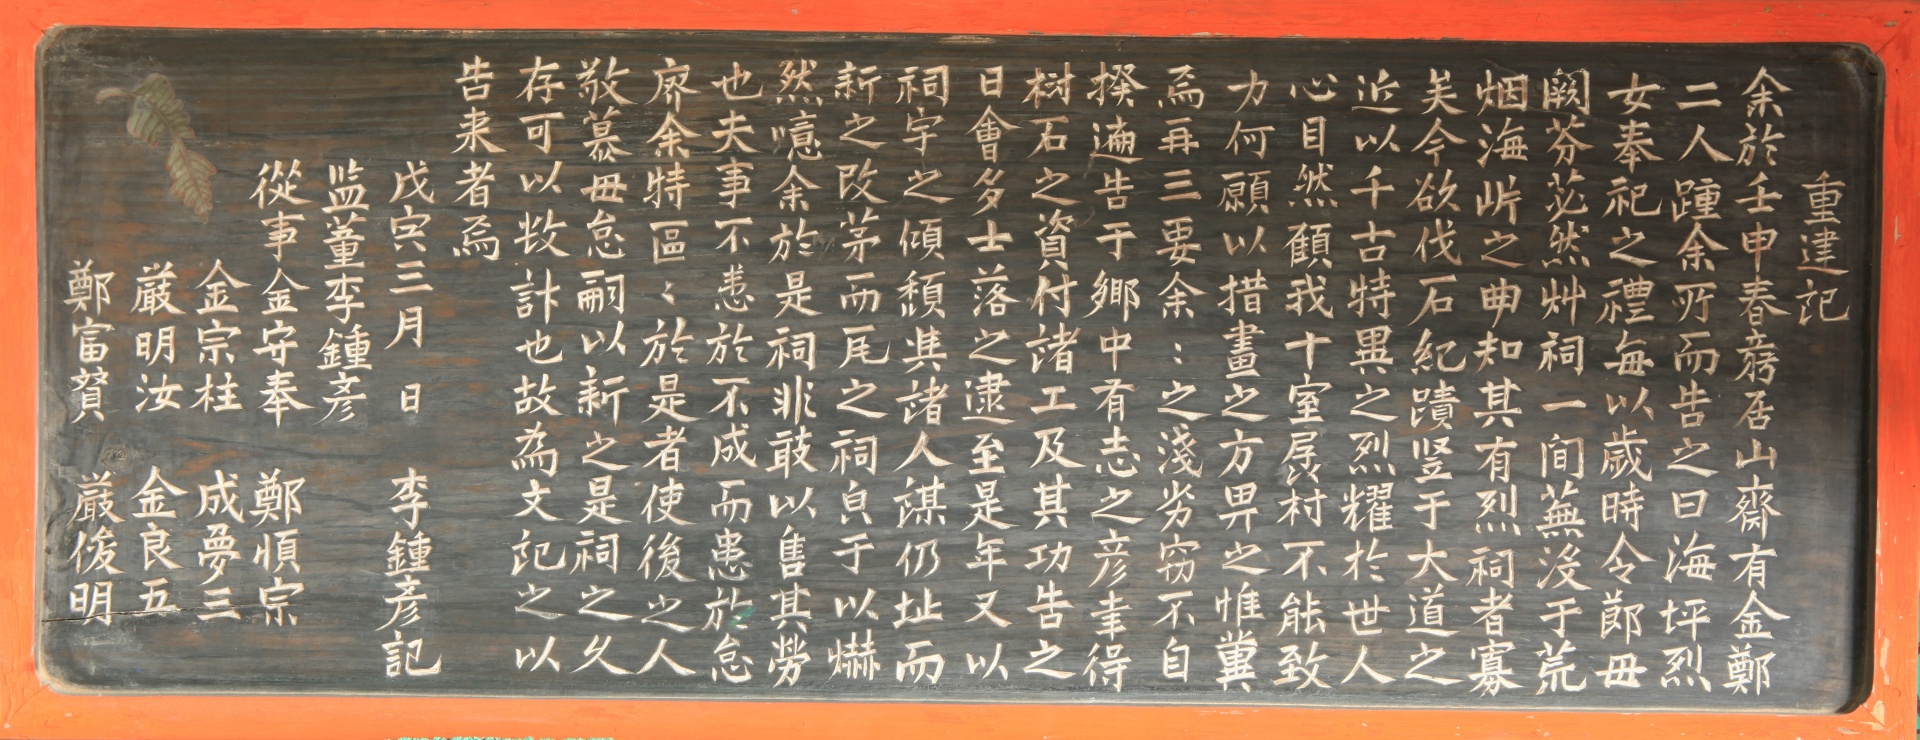 重建記
余於壬申春旁居山齋有金鄭
二人踵余所而告之曰海坪烈
女奉祀之禮每以歲時令郎毋
闕芬苾然艸祠一间蕪沒于荒
烟海岸之曲知其有烈祠者寡
矣今欲伐石紀蹟竖于大道之
近以千古特異之烈耀於世人
心目然顧我十室孱村不能致
力何願以措畫之方畀之惟冀
焉再三要余〻之淺劣窃不自
揆遍告于鄉中有志之彦幸得
树石之資付諸工及其功告之
日會多士落之逮至是年又以
祠宇之傾頹與諸人謀仍址而
新之改茅而瓦之祠貞于以爀
然噫余於是祠非敢以售其勞
也夫事不患於不成而患於怠
廢余特區〻於是者使後之人
敬慕毋怠嗣以新之是祠之久
存可以㪅計也故為文記之以
告来者焉
戊寅三月 日 李鍾彦記
监董李鍾彦
從事金守奉 鄭順宗
金宗柱 成夢三
嚴明汝 金良五
鄭富贇 嚴俊明